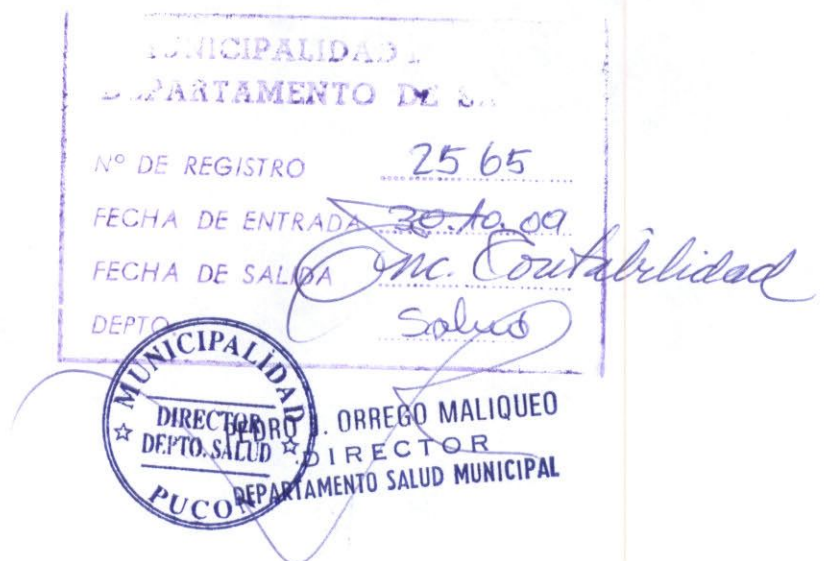 MUNICIPALIDAD
DEPARTAMENTO DE
Nº DE REGISTRO 2565
FECHA DE ENTRADA 30.10.09
FECHA DE SALIDA Enc. Contabilidad
DEPTO Salud
MUNICIPALIDAD
DIRECTOR
DEPTO. SALUD
PUCON
PEDRO . ORREGO MALIQUEO
DIRECTOR
DEPARTAMENTO SALUD MUNICIPAL